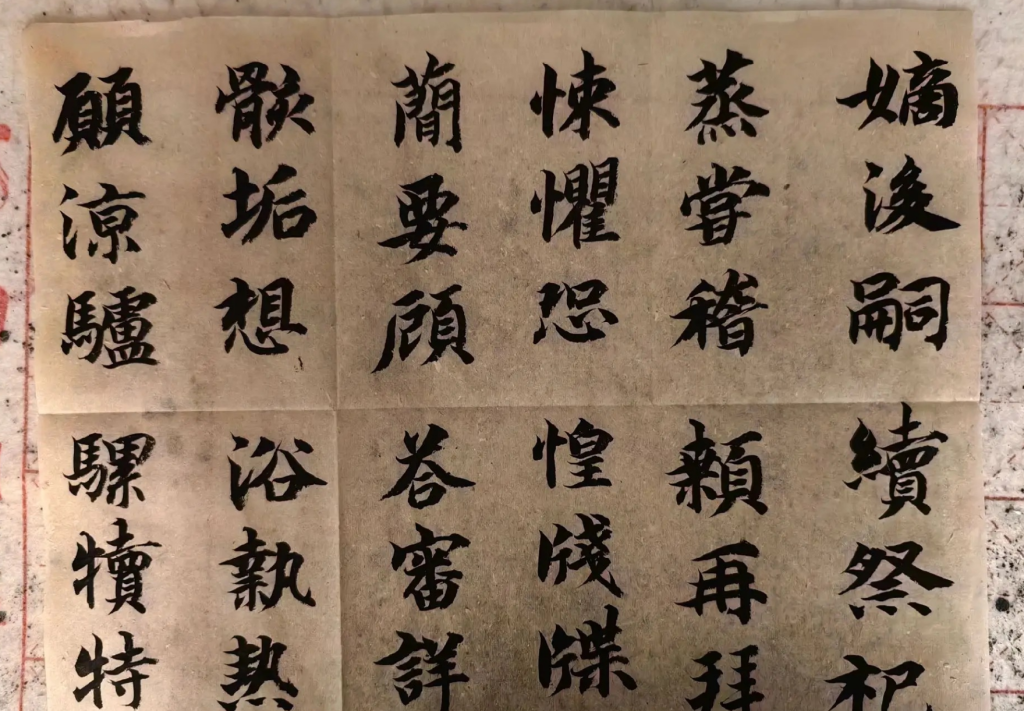 嫡後嗣續祭祀
蒸嘗稽顙再拜
悚懼恐惶牋牒
簡要顧答審詳
骸垢想浴執熱
願涼驢騾犢特